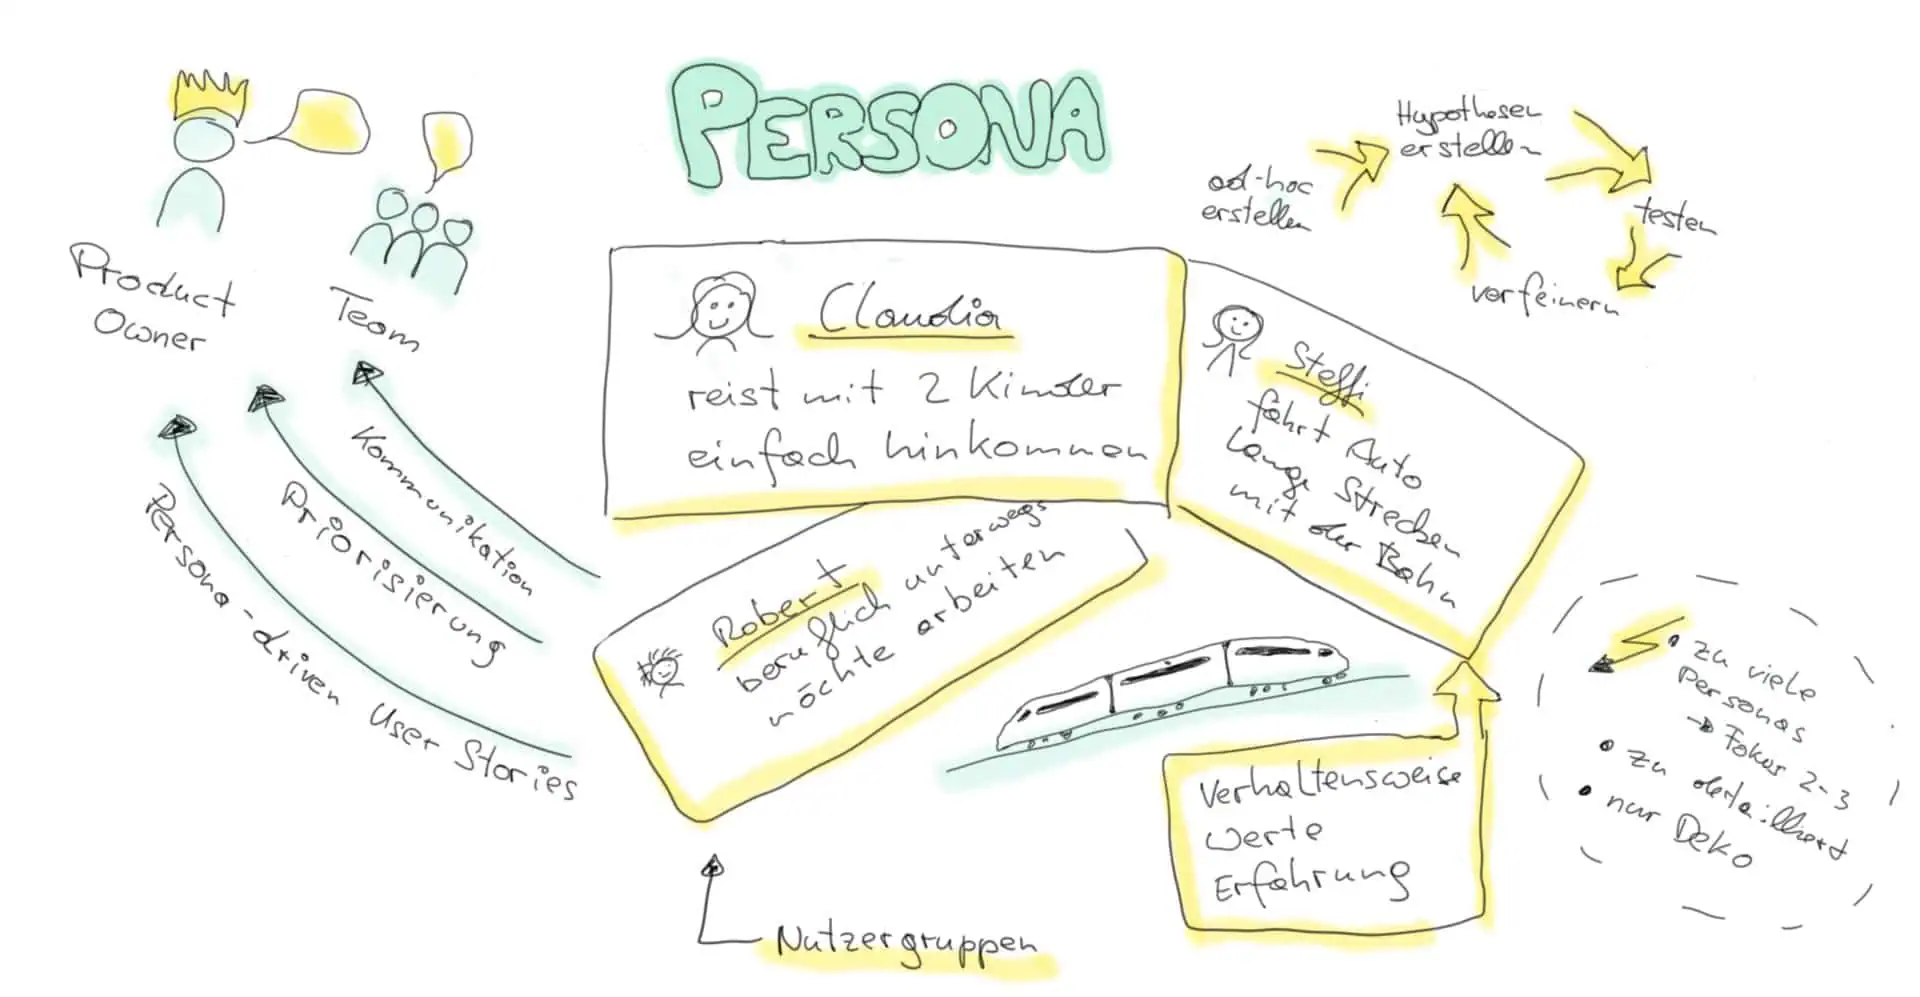 PERSONA
Product
Owner
Team
Kommunikation
Priorisierung
Persona-driven User Stories
Claudia
reist mit 2 Kinder
einfach hinkommen
Steffi
fährt Auto
lange Strecken
mit der Bahn
Robert
beruflich unterwegs
möchte arbeiten
Nutzergruppen
Verhaltensweise
Werte
Erfahrung
ad-hoc
erstellen
Hypothesen
erstellen
testen
verfeinern
• zu viele
Personas
→ Fokus 2-3
• zu detailliert
• nur Deko